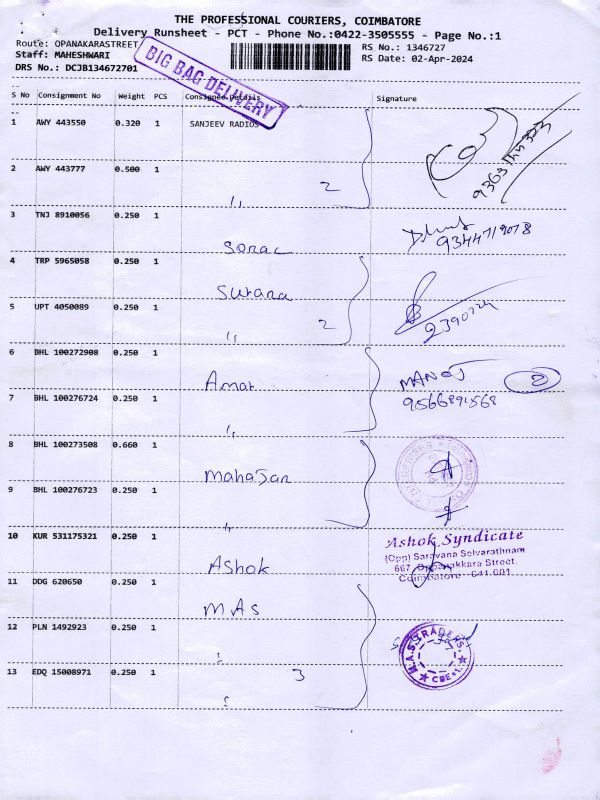 THE PROFESSIONAL COURIERS, COIMBATORE
Delivery Runsheet - PCT - Phone No.:0422-3505555 - Page No.:1
Route: OPANAKARASTREET
RS No.: 1346727
Staff: MAHESHWARI
RS Date: 02-Apr-2024
DRS No.: DCJB134672701
BIG BAG DELIVERY
S No Consignment No Weight PCS Consignee Details Signature
1 AWY 443550 0.320 1 SANJEEV RADIOS
2 AWY 443777 0.500 1
2
3 TNJ 8910056 0.250 1
9344719078
4 TRP 5965058 0.250 1
5 UPT 4050089 0.250 1
2
6 BHL 100272908 0.250 1
Amar
MANOJ 2
7 BHL 100276724 0.250 1
9566891568
8 BHL 100273508 0.660 1
mahaJan
9 BHL 100276723 0.250 1
10 KUR 531175321 0.250 1
Ashok
Ashok Syndicate
(Opp) Saravana Selvarathnam
667, Oppanakkara Street.
Coimbatore - 641 001.
11 DDG 620650 0.250 1
MAS
12 PLN 1492923 0.250 1
M.A.S TRADERS.
CBE-1.
13 EDQ 15008971 0.250 1
3